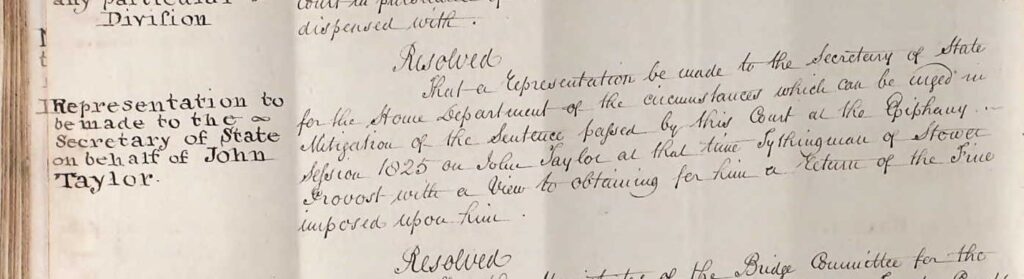 any particular
Division
dispensed with.
Resolved
Representation to
be made to the
Secretary of State
on behalf of John
Taylor.
That a Representation be made to the Secretary of State
for the Home Department of the circumstances which can be urged in
Mitigation of the Sentence passed by this Court at the Epiphany
Session 1825 on John Taylor at that time Tythingman of Stower
Provost with a View to obtaining for him a Return of the Fine
imposed upon him.
Resolved
of the Bridge Committee for the